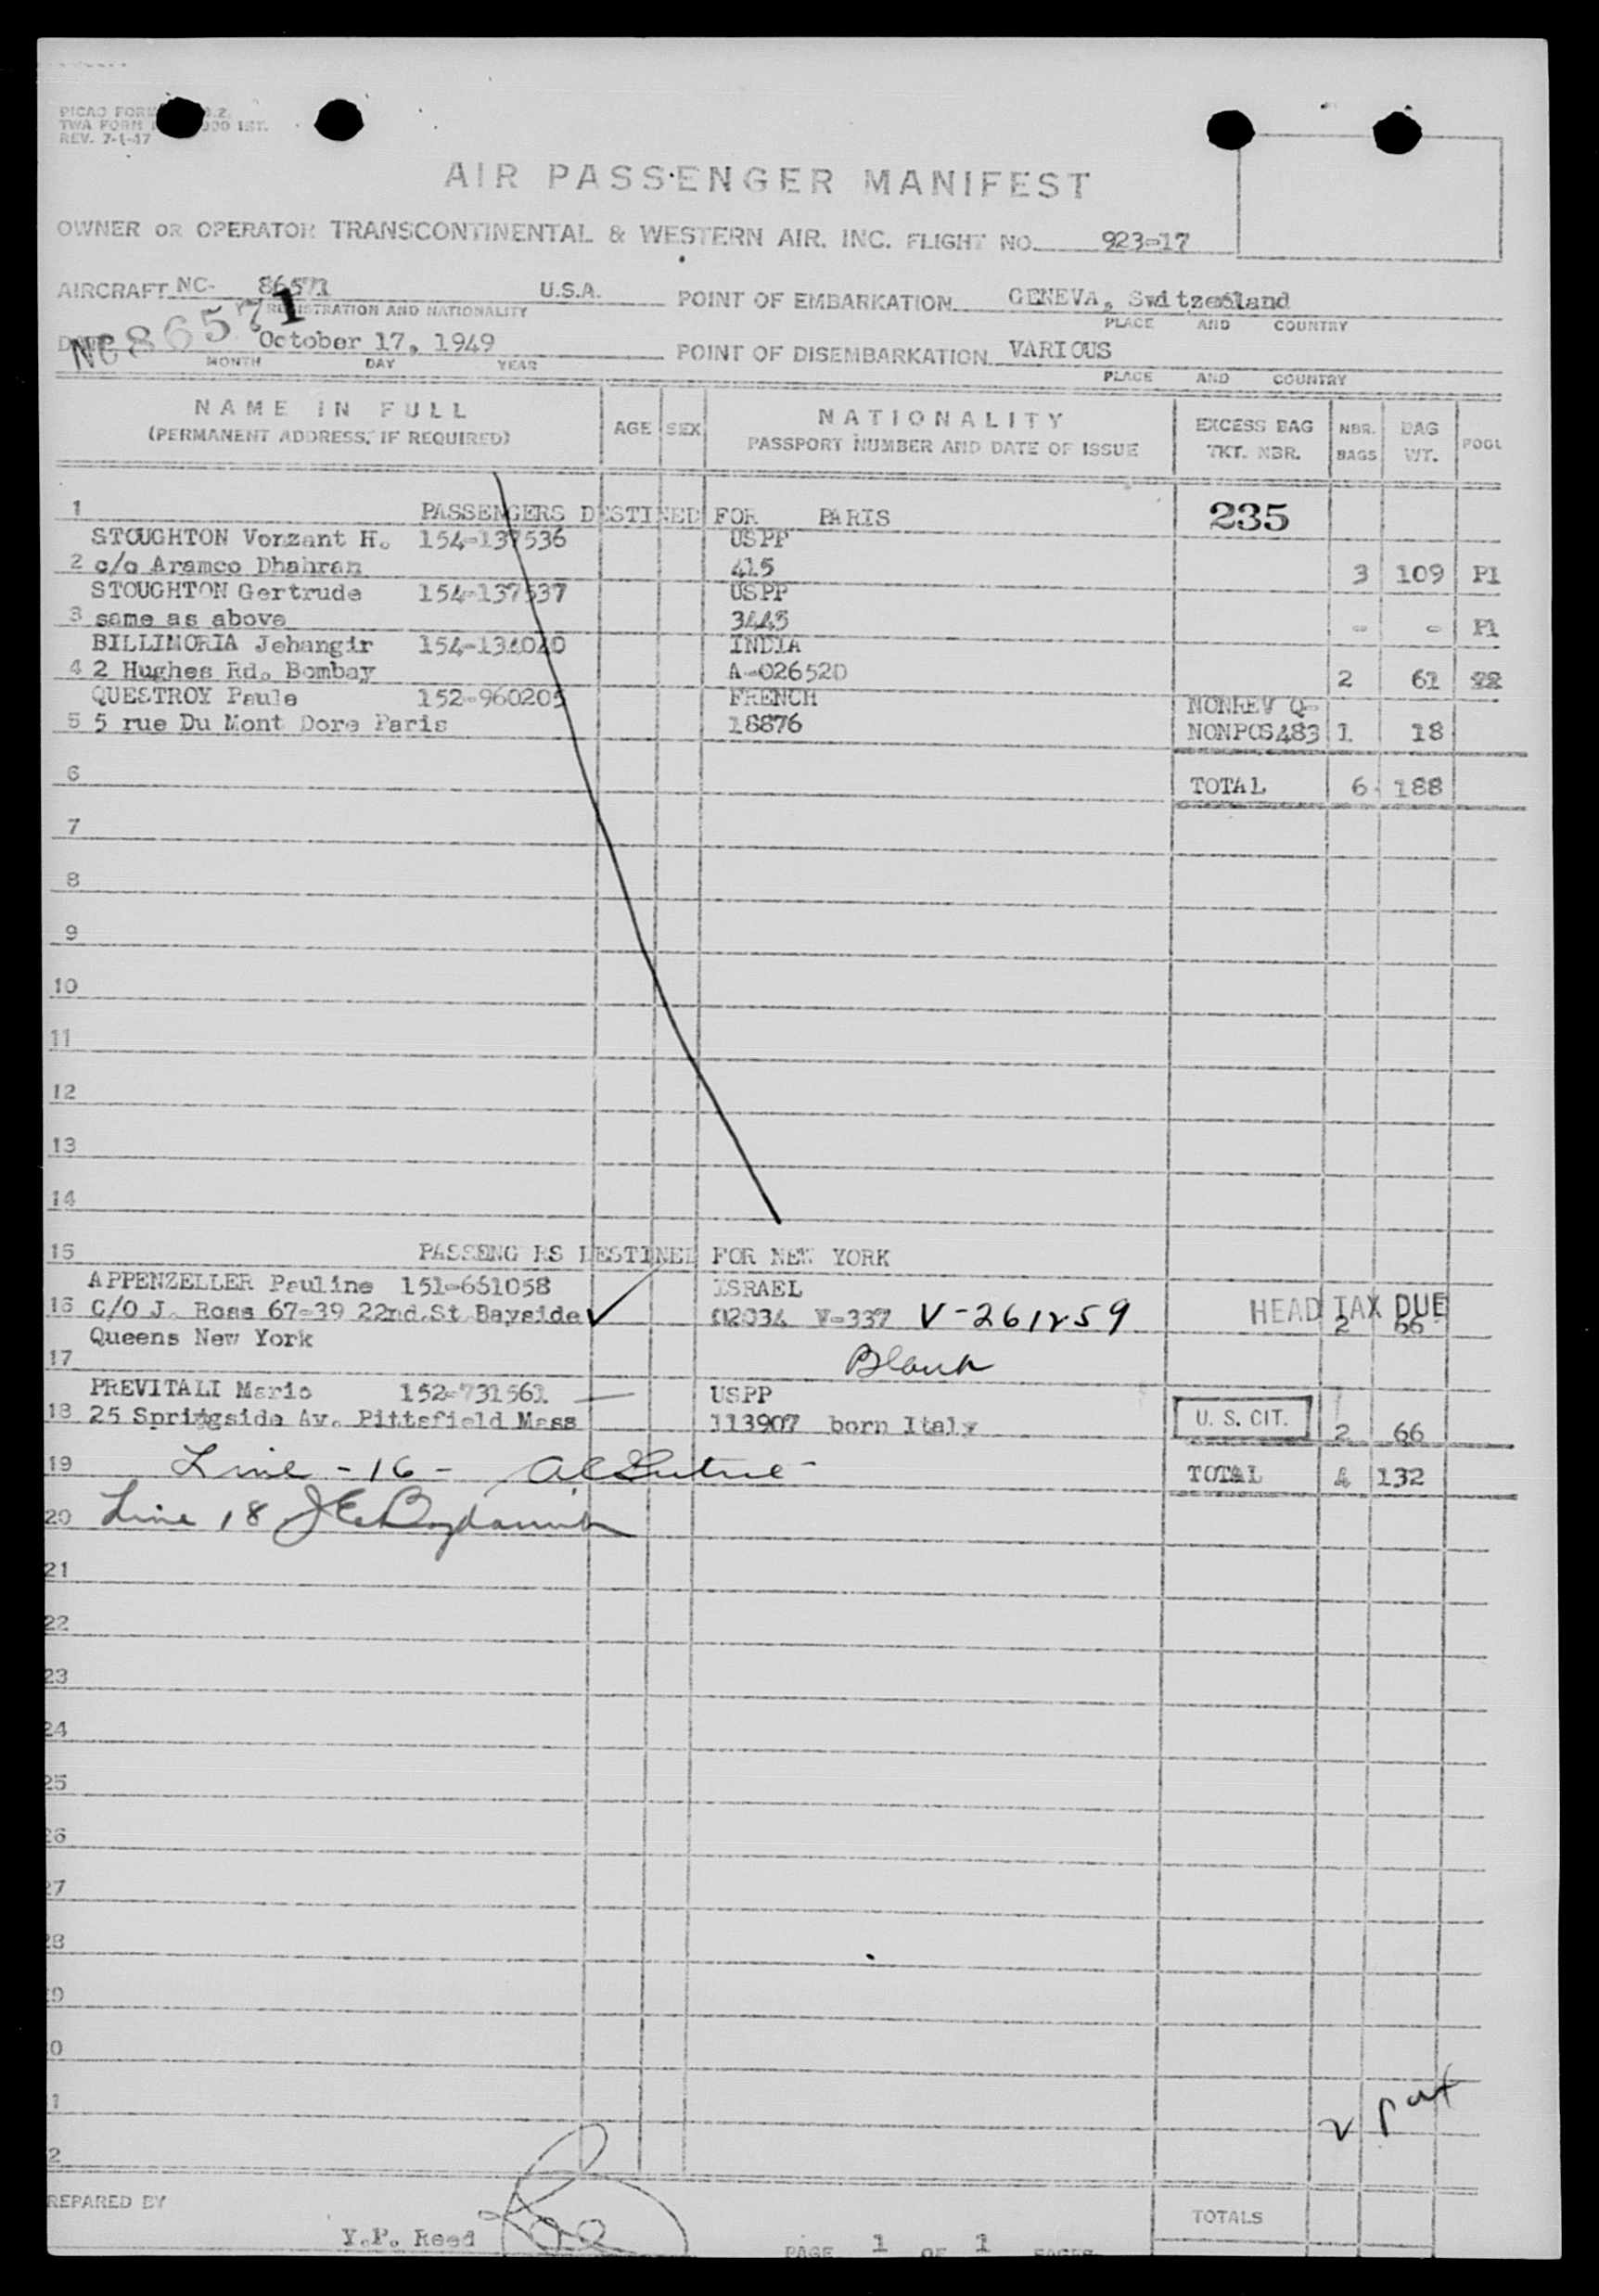 PICAO FORM
TWA FORM
REV. 7-1-47
AIR PASSENGER MANIFEST
OWNER OR OPERATOR TRANSCONTINENTAL & WESTERN AIR, INC. FLIGHT NO. 923-17
AIRCRAFT NC- 86571 U.S.A. POINT OF EMBARKATION GENEVA, Switzerland
REGISTRATION AND NATIONALITY PLACE AND COUNTRY
NC86571
October 17, 1949 POINT OF DISEMBARKATION VARIOUS
MONTH DAY YEAR PLACE AND COUNTRY
NAME IN FULL AGE SEX NATIONALITY EXCESS BAG NBR. BAG POOL
(PERMANENT ADDRESS, IF REQUIRED) PASSPORT NUMBER AND DATE OF ISSUE TKT. NBR. BAGS WT.
1 PASSENGERS DESTINED FOR PARIS 235
STOUGHTON Vonzant H. 154-137536 USPP
2 c/o Aramco Dhahran 415 3 109 P1
STOUGHTON Gertrude 154-137537 USPP
3 same as above 3445 - - P1
BILLIMORIA Jehangir 154-134040 INDIA
4 2 Hughes Rd. Bombay A-026520 2 61
QUESTROY Paule 152-960205 FRENCH NONREV Q-
5 5 rue Du Mont Dore Paris 18876 NONPOS483 1 18
6 TOTAL 6 188
7
8
9
10
11
12
13
14
15 PASSENG RS DESTINED FOR NEW YORK
APPENZELLER Pauline 151-651058 ISRAEL
16 C/O J. Ross 67-39 22nd.St Bayside 02034 V-337 V-261259 HEAD TAX DUE 2 66
Queens New York
17 Blank
PREVITALI Mario 152-731561 USPP
18 25 Springside Av. Pittsfield Mass 113907 born Italy U. S. CIT. 2 66
19 Line - 16 - TOTAL 4 132
20 Line 18
21
22
23
24
25
26
27
28
29
30
31
2
PREPARED BY TOTALS
Y.P. Reed PAGE 1 OF 1 PAGES